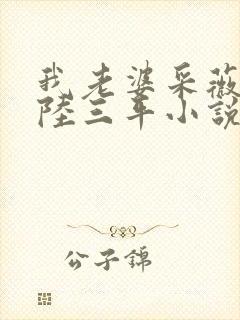 我老婆采薇
陸三年小說
公子錦